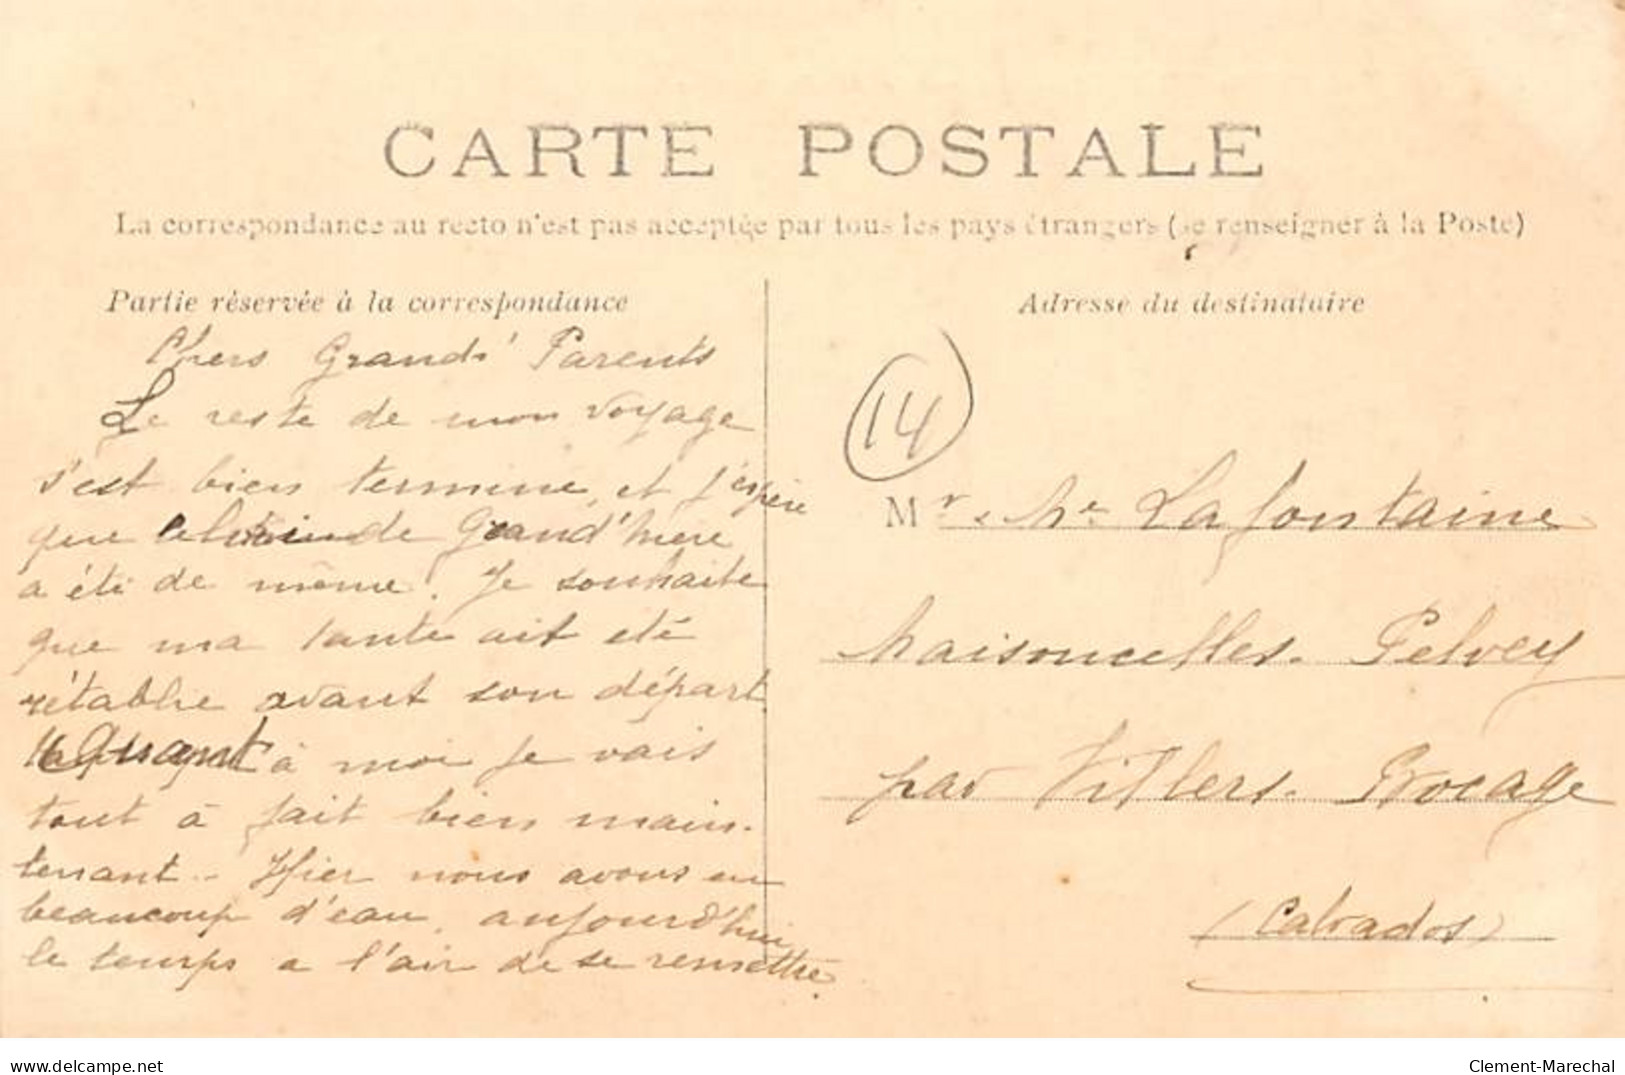 CARTE POSTALE
La correspondance au recto n'est pas acceptée par tous les pays étrangers (se renseigner à la Poste)
Partie réservée à la correspondance
Chers Grands' Parents
Le reste de mon voyage
s'est bien terminé, et j'espère
que celui de Grand'mère
a été de même. Je souhaite
que ma tante ait été
rétablie avant son départ.
Quant à moi je vais
tout à fait bien main-
tenant.. Hier nous avons eu
beaucoup d'eau, aujourd'hui
le temps a l'air de se remettre.
Adresse du destinataire
14
Mr. Me Lafontaine
Maisoncelles. Pelvey
par Villers. Bocage
(Calvados)
www.delcampe.net
Clement-Marechal